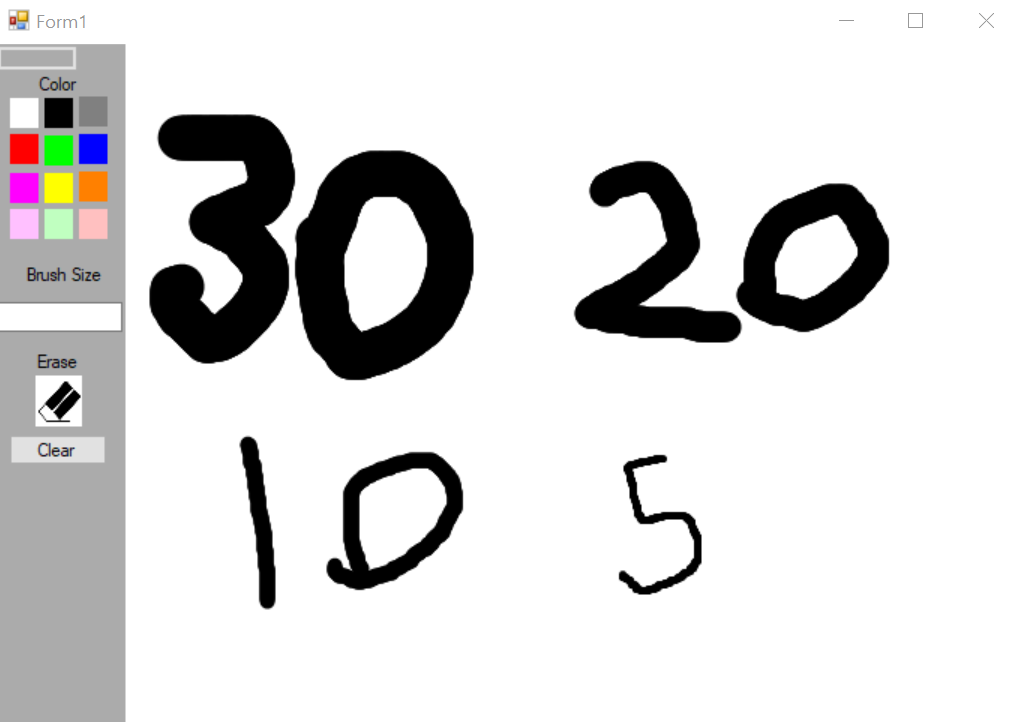 Form1
Color
Brush Size
Erase
Clear
30 20
10 5